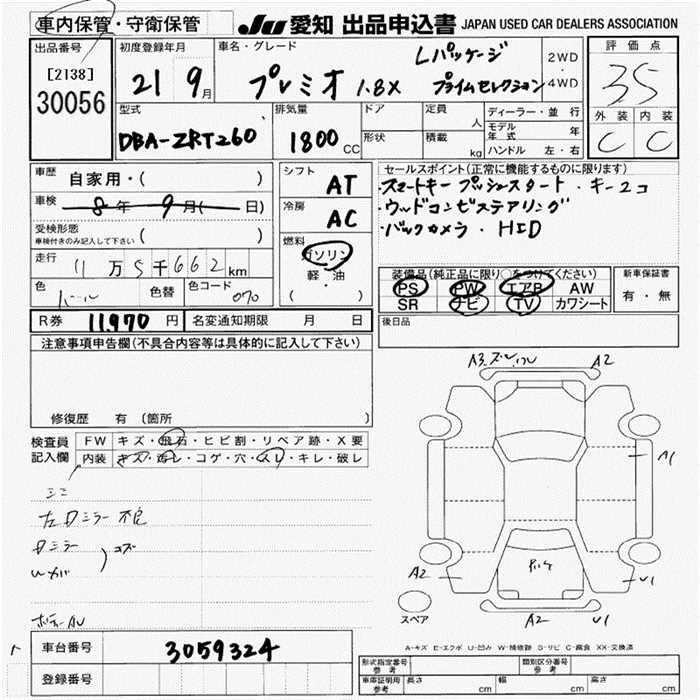 車内保管・守衛保管
JU 愛知 出品申込書 JAPAN USED CAR DEALERS ASSOCIATION
出品番号
[2138]
30056
初度登録年月
21 9月
車名・グレード
Lパッケージ
プレミオ 1.8X プライムセレクション
2WD
・
4WD
評価点
3.5
外装 内装
C C
型式
DBA-ZRT260
排気量
1800 CC
ドア
形状
定員
人
積載
kg
ディーラー・並行
モデル年式 年
ハンドル 左・右
車歴 自家用・( )
車検 8年 9月( 日)
受検形態
車検付きのみ記入して下さい ( )
走行 11万5千662km
色 パール 色替 色コード 070
シフト AT
冷房 AC
燃料
ガソリン
軽・油
( )
セールスポイント(正常に機能するものに限ります)
・スマートキー プッシュスタート・キー2コ
・ウッドコンビステアリング
・バックカメラ・HID
装備品(純正品に限り○をつけてください)
PS PW エアB AW
SR ナビ TV カワシート
新車保証書
有・無
R券 11,970円 名変通知期限 月 日
後日品
注意事項申告欄(不具合内容等は具体的に記入して下さい)
修復歴 有 (箇所 )
検査員
記入欄
FW キズ・飛石・ヒビ割・リペア跡・X要
内装 キズ・汚レ・コゲ・穴・スレ・キレ・破レ
左Dミラー不良
Dミラー
コズ
A3 A2
A1
A2
U1
A2 U1
スペア
A-キズ E-エクボ U-凹み W-補修跡 S-サビ C-腐食 XX-交換済
車台番号 3059324
登録番号
形式指定番号
参考
類別区分番号
参考
車庫証明用
参考
長さ cm 幅 cm 高さ cm